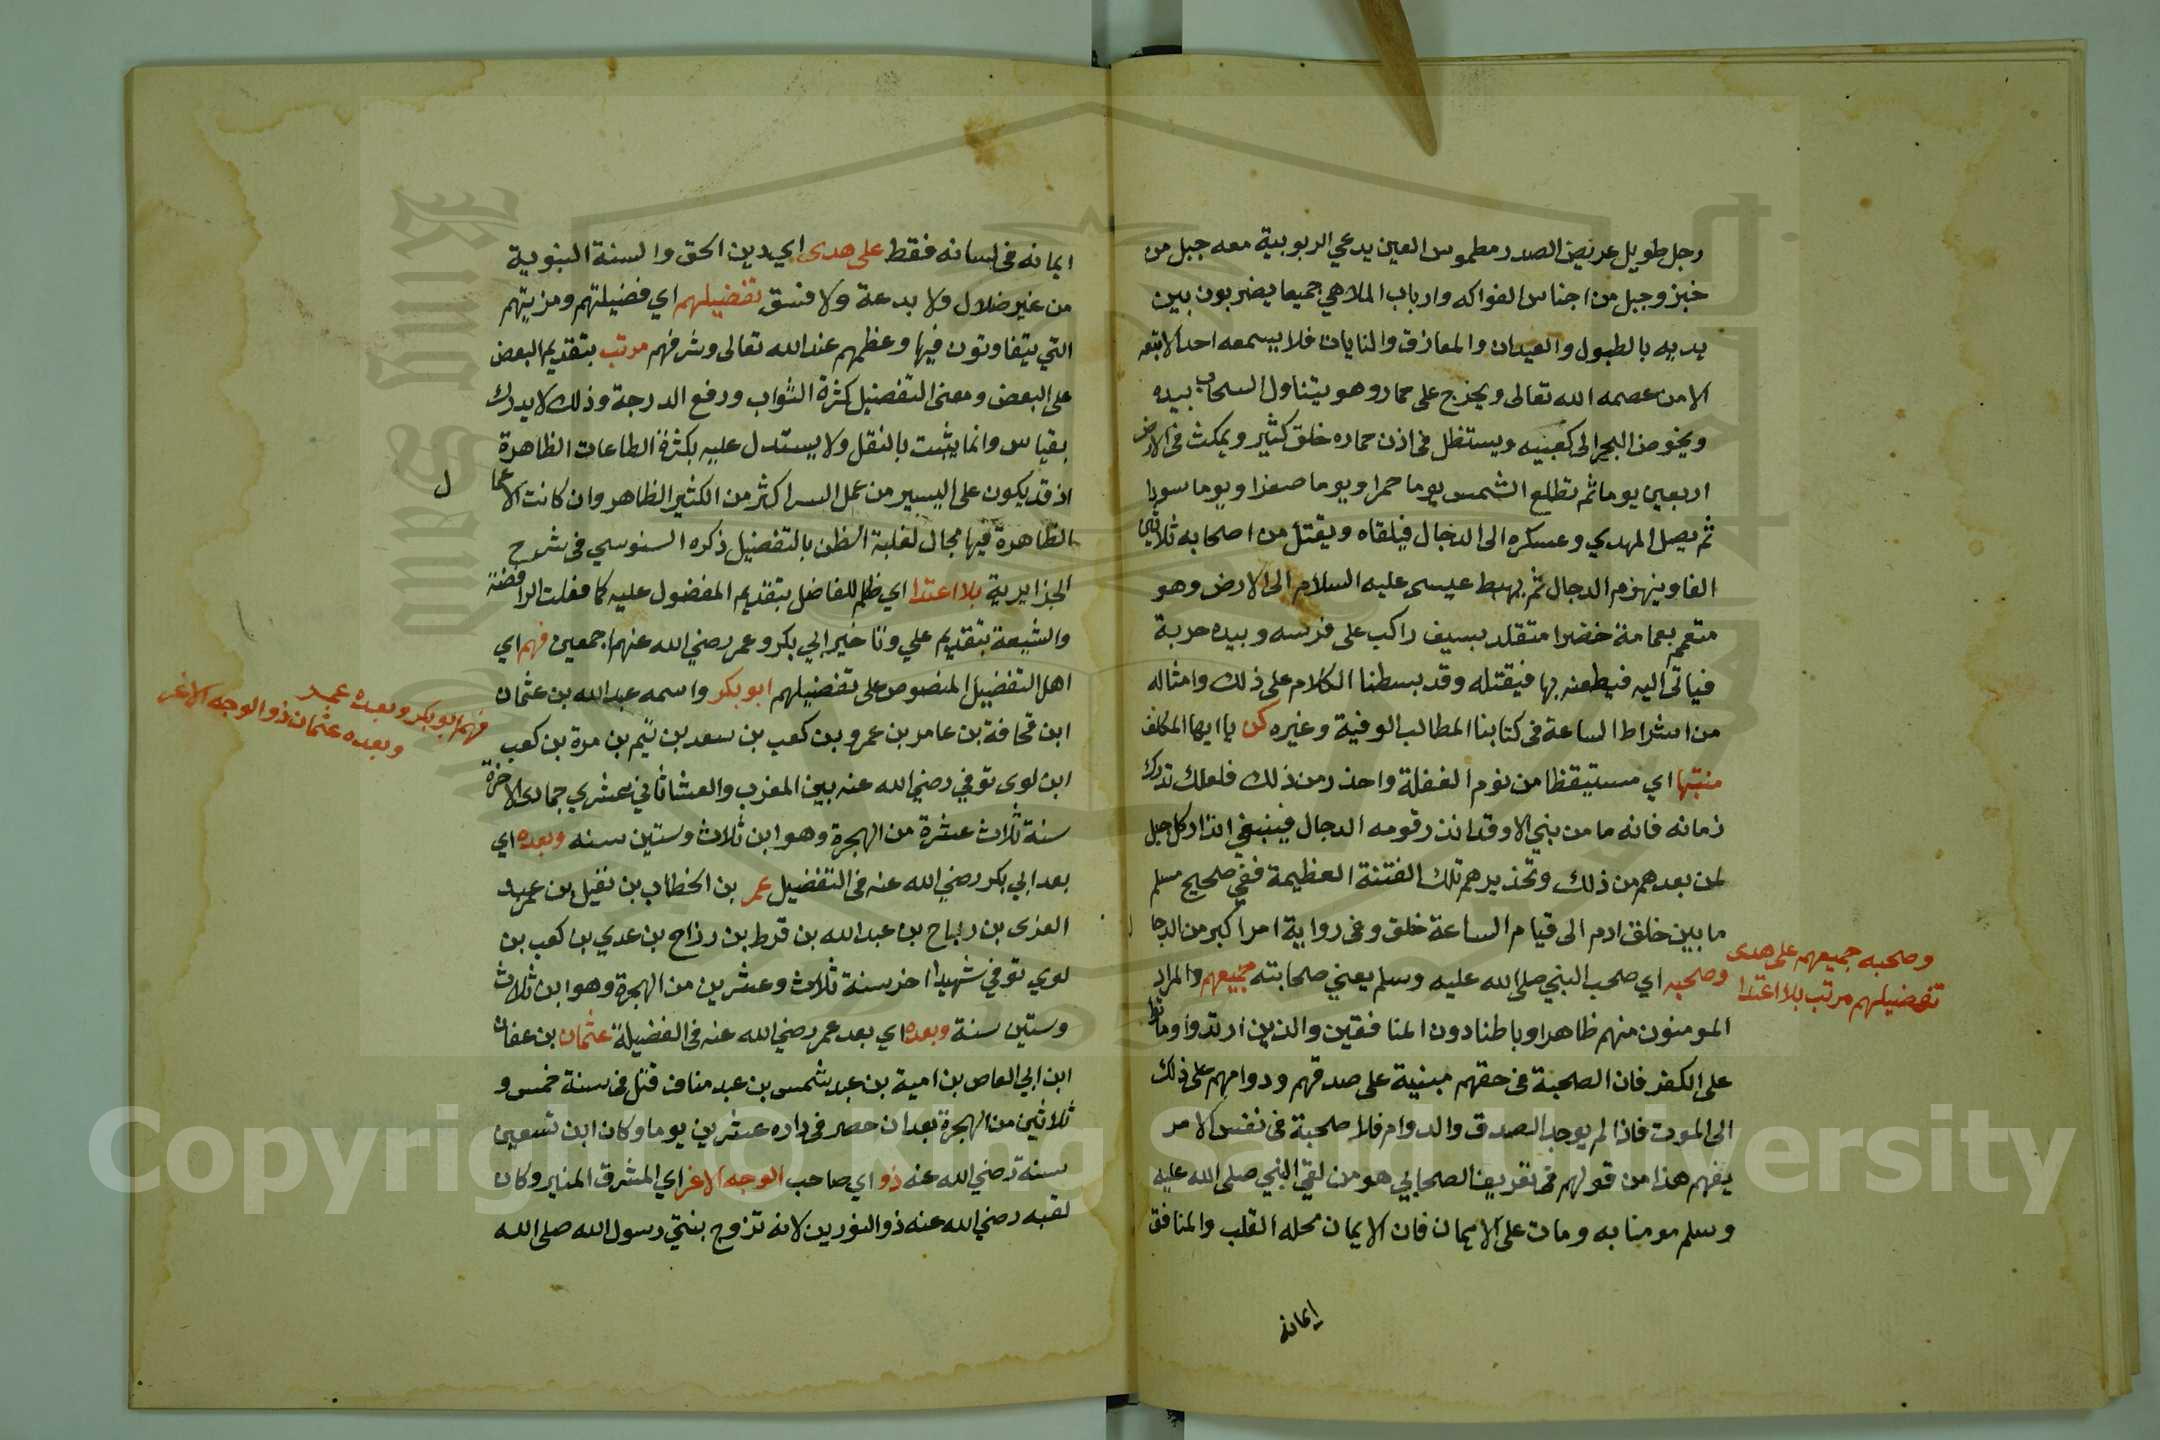 رجل طويل عريض الصدر مطموس العين يدعي الربوبية معه جبل من
خبز وجبل من اجناس الفواكه وارباب الملاهي جميعا يضربون بين
يديه بالطبول والعيدان والمعازف والنايات فلا يسمعه احد الا تبعه
الا من عصمه الله تعالى ويخرج على حمار وهو يتناول السحاب بيده
ويخوض البحر الى كعبيه ويستظل في اذن حماره خلق كثير ويمكث في الارض
اربعين يوما ثم تطلع الشمس يوما حمرا ويوما صفرا ويوما سودا
ثم يصل المهدي وعسكره الى الدجال فيلقاه ويقتل من اصحابه ثلاثين
الفا وينهزم الدجال ثم يهبط عيسى عليه السلام الى الارض وهو
متعمم بعمامة خضرا متقلد بسيف راكب على فرسه وبيده حربة
فياتي اليه فيطعنه بها فيقتله وقد بسطنا الكلام على ذلك وامثاله
من اشراط الساعة في كتابنا المطالب الوفية وغيره كن يا ايها المكلف
منتبها اي مستيقظا من نوم الغفلة واحذر من ذلك فلعلك تدرك
زمانه فانه ما من نبي الا وقد انذر قومه الدجال فينبغي انذار كل جيل
لمن بعدهم من ذلك وتحذيرهم تلك الفتنة العظيمة ففي صحيح مسلم
ما بين خلق ادم الى قيام الساعة خلق وفي رواية امر اكبر من الدجال
وصحبه اي صحب النبي صلى الله عليه وسلم يعني صحابته جميعهم والمراد
المومنون منهم ظاهرا وباطنا دون المنافقين والذين ارتدوا وماتوا
على الكفر فان الصحبة في حقهم مبنية على صدقهم ودوامهم على ذلك
الى الموت فاذا لم يوجد الصدق والدوام فلا صحبة في نفس الامر
يفهم هذا من قولهم في تعريف الصحابي هو من لقي النبي صلى الله عليه
وسلم مومنا به ومات على الايمان فان الايمان محله القلب والمنافق
ايمانه
وصحبه جميعهم على هدى
تفضيلهم مرتب بلا اعتدا
ايمانه في لسانه فقط على هدى اي دين الحق والسنة النبوية
من غير ضلال ولا بدعة ولا فسق تفضيلهم اي فضيلتهم ومزيتهم
التي يتفاوتون فيها وعظمهم عند الله تعالى وشرفهم مرتب بتقديم البعض
على البعض ومعنى التفضيل كثرة الثواب ورفع الدرجة وذلك لا يدرك
بقياس وانما يثبت بالنقل ولا يستدل عليه بكثرة الطاعات الظاهرة
اذ قد يكون على اليسير من عمل السر اكثر من الكثير الظاهر وان كانت الاعمال
الظاهرة فيها مجال لغلبة الظن بالتفضيل ذكره السنوسي في شرح
الجزايرية بلا اعتدا اي ظلم للفاضل بتقديم المفضول عليه كما فعلت الرافضة
والشيعة بتقديم علي وتاخير ابي بكر وعمر رضي الله عنهم اجمعين فهم اي
اهل التفضيل المنصوص على تفضيلهم ابو بكر واسمه عبد الله بن عثمان
ابن قحافة بن عامر بن عمرو بن كعب بن سعد بن تيم بن مرة بن كعب
ابن لوي توفي رضي الله عنه بين المغرب والعشا ثاني عشري جمادى الاخرة
سنة ثلاث عشرة من الهجرة وهو ابن ثلاث وستين سنه وبعده اي
بعد ابي بكر رضي الله عنه في التفضيل عمر بن الخطاب بن نفيل بن عبد
العزى بن رباح بن عبد الله بن قرط بن رزاح بن عدي بن كعب بن
لوي توفي شهيدا اخر سنة ثلاث وعشرين من الهجرة وهو ابن ثلاث
وستين سنة وبعده اي بعد عمر رضي الله عنه في الفضيلة عثمان بن عفان
ابن ابي العاص بن امية بن عبد شمس بن عبد مناف قتل في سنة خمس و
ثلاثين من الهجرة بعد ان حصر في داره عشرين يوما وكان ابن تسعين
سنة رضي الله عنه ذو اي صاحب الوجه الاغر اي المشرق المنير وكان
لقبه رضي الله عنه ذو النورين لانه تزوج بنتي رسول الله صلى الله
فهم ابو بكر وبعده عمر
وبعده عثمان ذو الوجه الاغر
Copyright © King Saud University